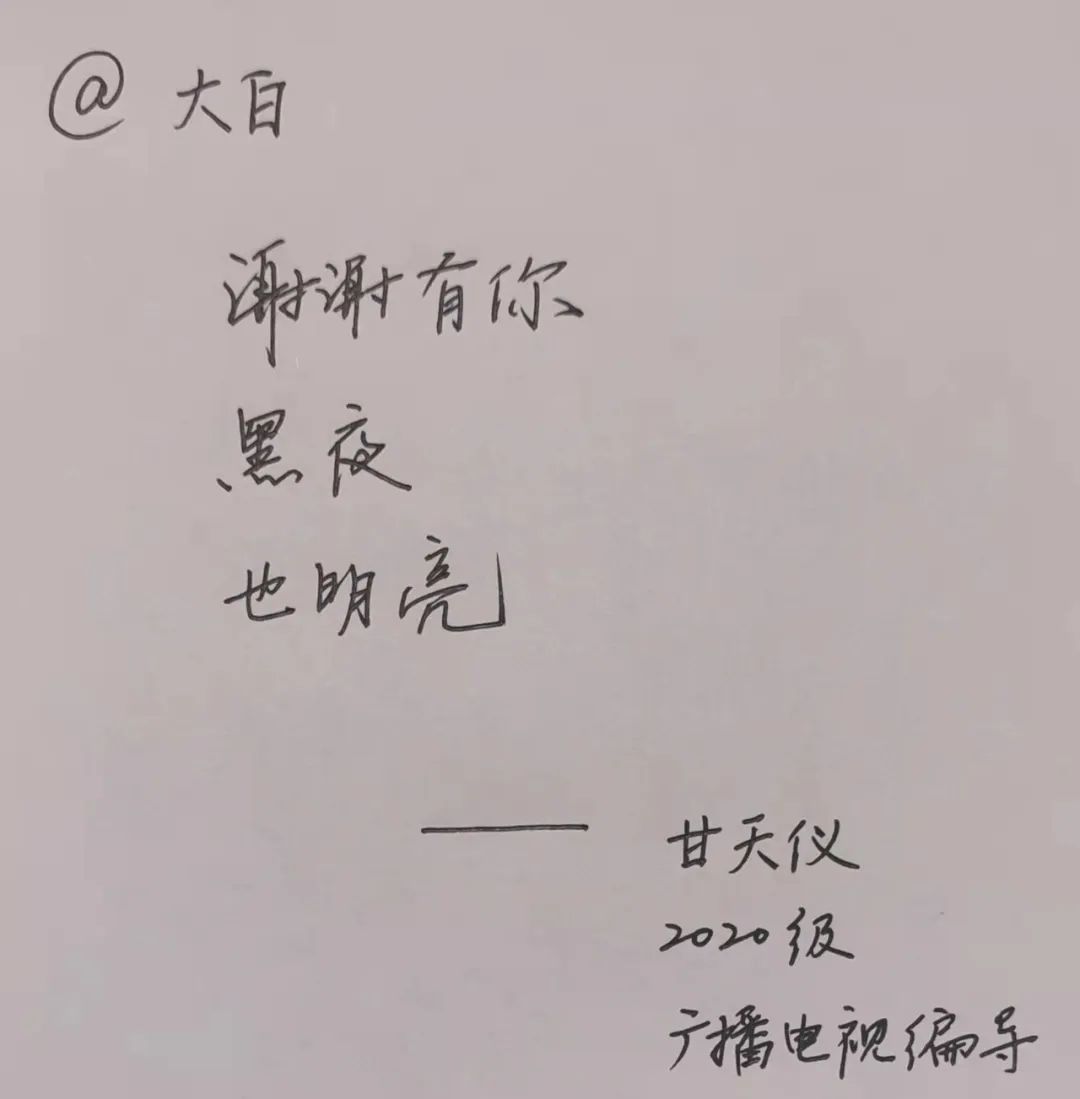 @大白
谢谢有你
黑夜
也明亮
—— 甘天仪
2020级
广播电视编导